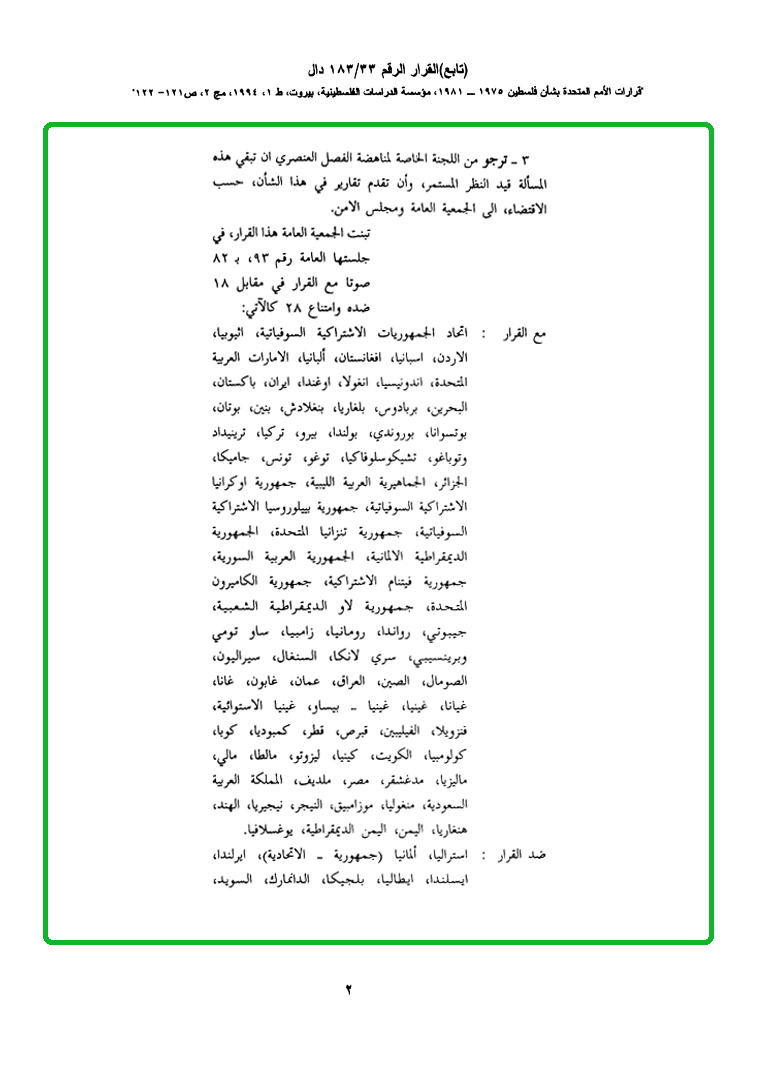 (تابع)القرار الرقم ١٨٣/٣٣ دال
"قرارات الأمم المتحدة بشأن فلسطين ١٩٧٥ ــ ١٩٨١، مؤسسة الدراسات الفلسطينية، بيروت، ط ١، ١٩٩٤، مج ٢، ص١٢١- ١٢٢"
٣ ــ ترجو من اللجنة الخاصة لمناهضة الفصل العنصري ان تبقي هذه
المسألة قيد النظر المستمر، وأن تقدم تقارير في هذا الشأن، حسب
الاقتضاء، الى الجمعية العامة ومجلس الامن.
تبنت الجمعية العامة هذا القرار، في
جلستها العامة رقم ٩٣، بـ ٨٢
صوتا مع القرار في مقابل ١٨
ضده وامتناع ٢٨ كالآتي:
مع القرار : اتحاد الجمهوريات الاشتراكية السوفياتية، اثيوبيا،
الاردن، اسبانيا، افغانستان، ألبانيا، الامارات العربية
المتحدة، اندونيسيا، انغولا، اوغندا، ايران، باكستان،
البحرين، بربادوس، بلغاريا، بنغلادش، بنين، بوتان،
بوتسوانا، بوروندي، بولندا، بيرو، تركيا، ترينيداد
وتوباغو، تشيكوسلوفاكيا، توغو، تونس، جاميكا،
الجزائر، الجماهيرية العربية الليبية، جمهورية اوكرانيا
الاشتراكية السوفياتية، جمهورية بييلوروسيا الاشتراكية
السوفياتية، جمهورية تنزانيا المتحدة، الجمهورية
الديمقراطية الالمانية، الجمهورية العربية السورية،
جمهورية فيتنام الاشتراكية، جمهورية الكاميرون
المتحدة، جمهورية لاو الديمقراطية الشعبية،
جيبوتي، رواندا، رومانيا، زامبيا، ساو تومي
وبرينسيبي، سري لانكا، السنغال، سيراليون،
الصومال، الصين، العراق، عمان، غابون، غانا،
غيانا، غينيا، غينيا ــ بيساو، غينيا الاستوائية،
فنزويلا، الفيليبين، قبرص، قطر، كمبوديا، كوبا،
كولومبيا، الكويت، كينيا، ليزوتو، مالطا، مالي،
ماليزيا، مدغشقر، مصر، ملديف، المملكة العربية
السعودية، منغوليا، موزامبيق، النيجر، نيجيريا، الهند،
هنغاريا، اليمن، اليمن الديمقراطية، يوغسلافيا.
ضد القرار : استراليا، ألمانيا (جمهورية ــ الاتحادية)، ايرلندا،
ايسلندا، ايطاليا، بلجيكا، الدانمارك، السويد،
٢